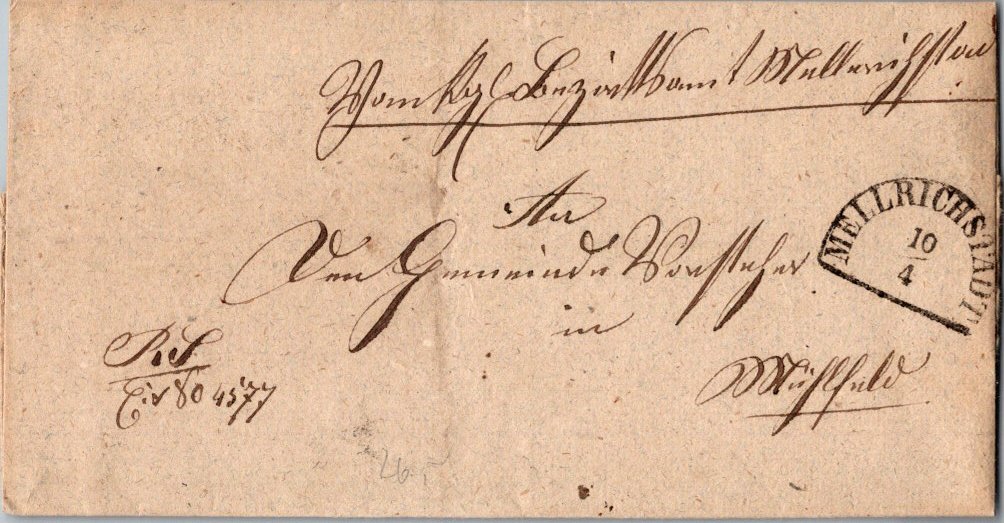 Vom Kgl Bezirksamt Mellrichstad
An
Den Gemeinde Vorsteher
in
Mühlfeld
MELLRICHSTADT
10
4
R.S.
4577
26